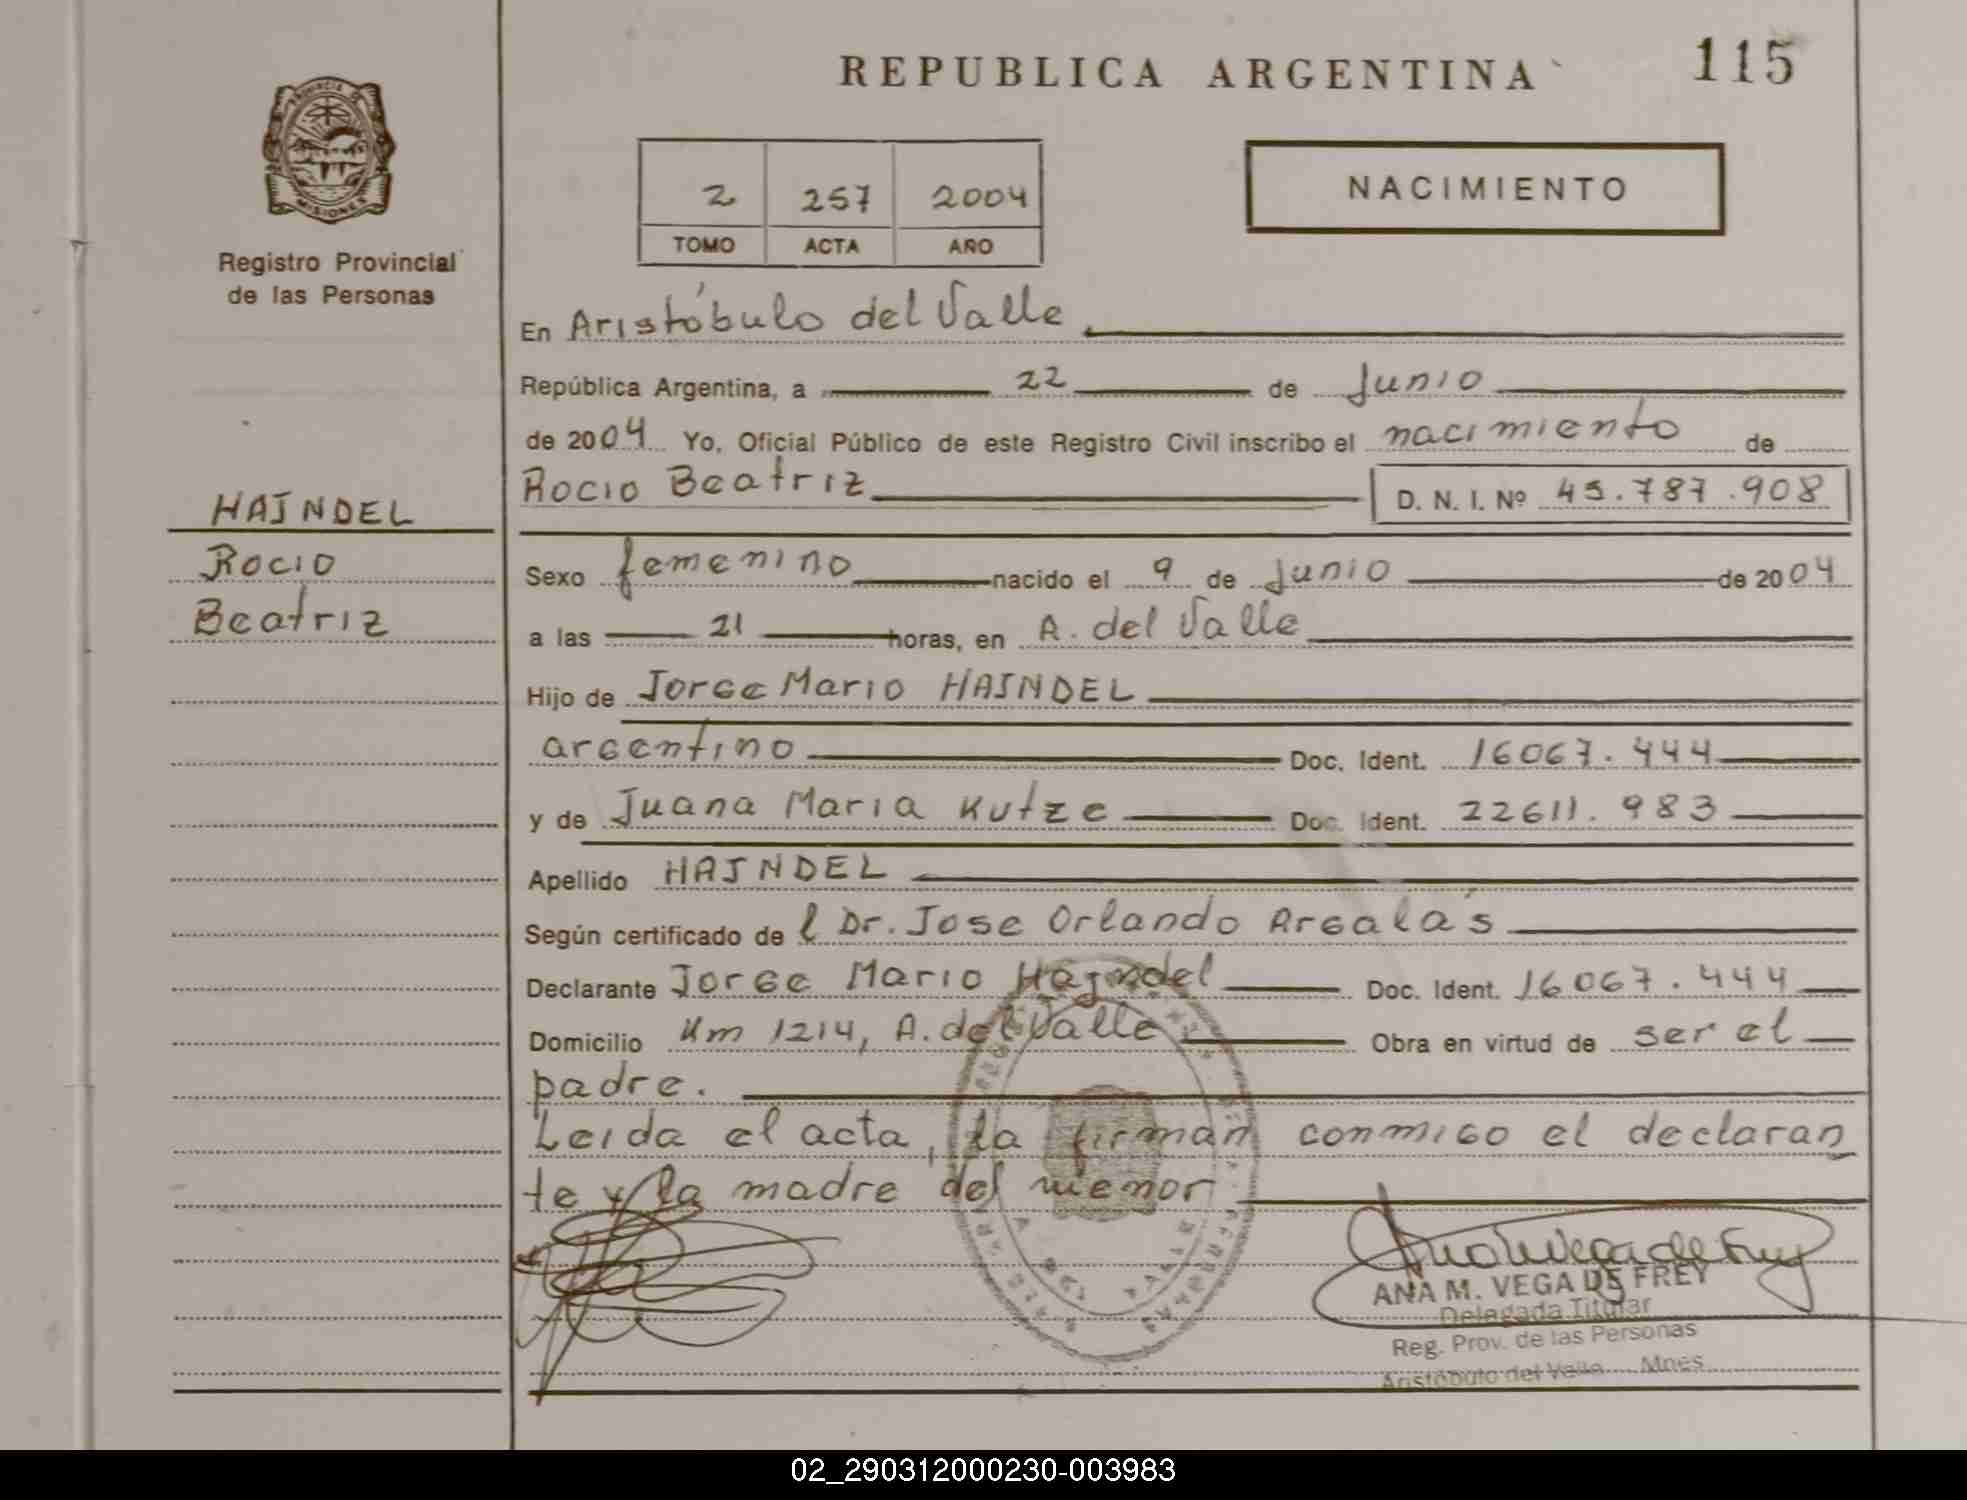 REPUBLICA ARGENTINA
115
PROVINCIA DE
MISIONES
Registro Provincial
de las Personas
2 257 2004
TOMO ACTA AÑO
NACIMIENTO
En Aristóbulo del Valle
República Argentina, a 22 de Junio
de 2004 Yo, Oficial Público de este Registro Civil inscribo el nacimiento de
Rocio Beatriz D. N. I. Nº 45.787.908
HAJNDEL
Rocio
Beatriz
Sexo femenino nacido el 9 de Junio de 2004
a las 21 horas, en A. del Valle
Hijo de Jorge Mario HAJNDEL
argentino Doc. Ident. 16067.444
y de Juana Maria Kutze Doc. Ident. 22611.983
Apellido HAJNDEL
Según certificado de l Dr. Jose Orlando Argalás
Declarante Jorge Mario Hajndel Doc. Ident. 16067.444
Domicilio Km 1214, A. del Valle Obra en virtud de ser el
padre.
Leida el acta, la firman conmigo el declaran
te y la madre del menor
ANA M. VEGA DE FREY
Delegada Titular
Reg. Prov. de las Personas
Aristóbulo del Valle Mnes
02_290312000230-003983